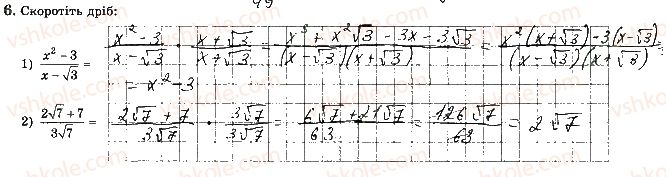 49
6. Скоротіть дріб:
1) \frac{x^2 - 3}{x - \sqrt{3}} = \frac{x^2 - 3}{x - \sqrt{3}} \cdot \frac{x + \sqrt{3}}{x + \sqrt{3}} = \frac{x^3 + x^2\sqrt{3} - 3x - 3\sqrt{3}}{(x - \sqrt{3})(x + \sqrt{3})} = \frac{x^2(x + \sqrt{3}) - 3(x - \sqrt{3})}{(x - \sqrt{3})(x + \sqrt{3})} =
= x^2 - 3
2) \frac{2\sqrt{7} + 7}{3\sqrt{7}} = \frac{2\sqrt{7} + 7}{3\sqrt{7}} \cdot \frac{3\sqrt{7}}{3\sqrt{7}} = \frac{6\sqrt{7} + 21\sqrt{7}}{63} = \frac{126\sqrt{7}}{63} = 2\sqrt{7}